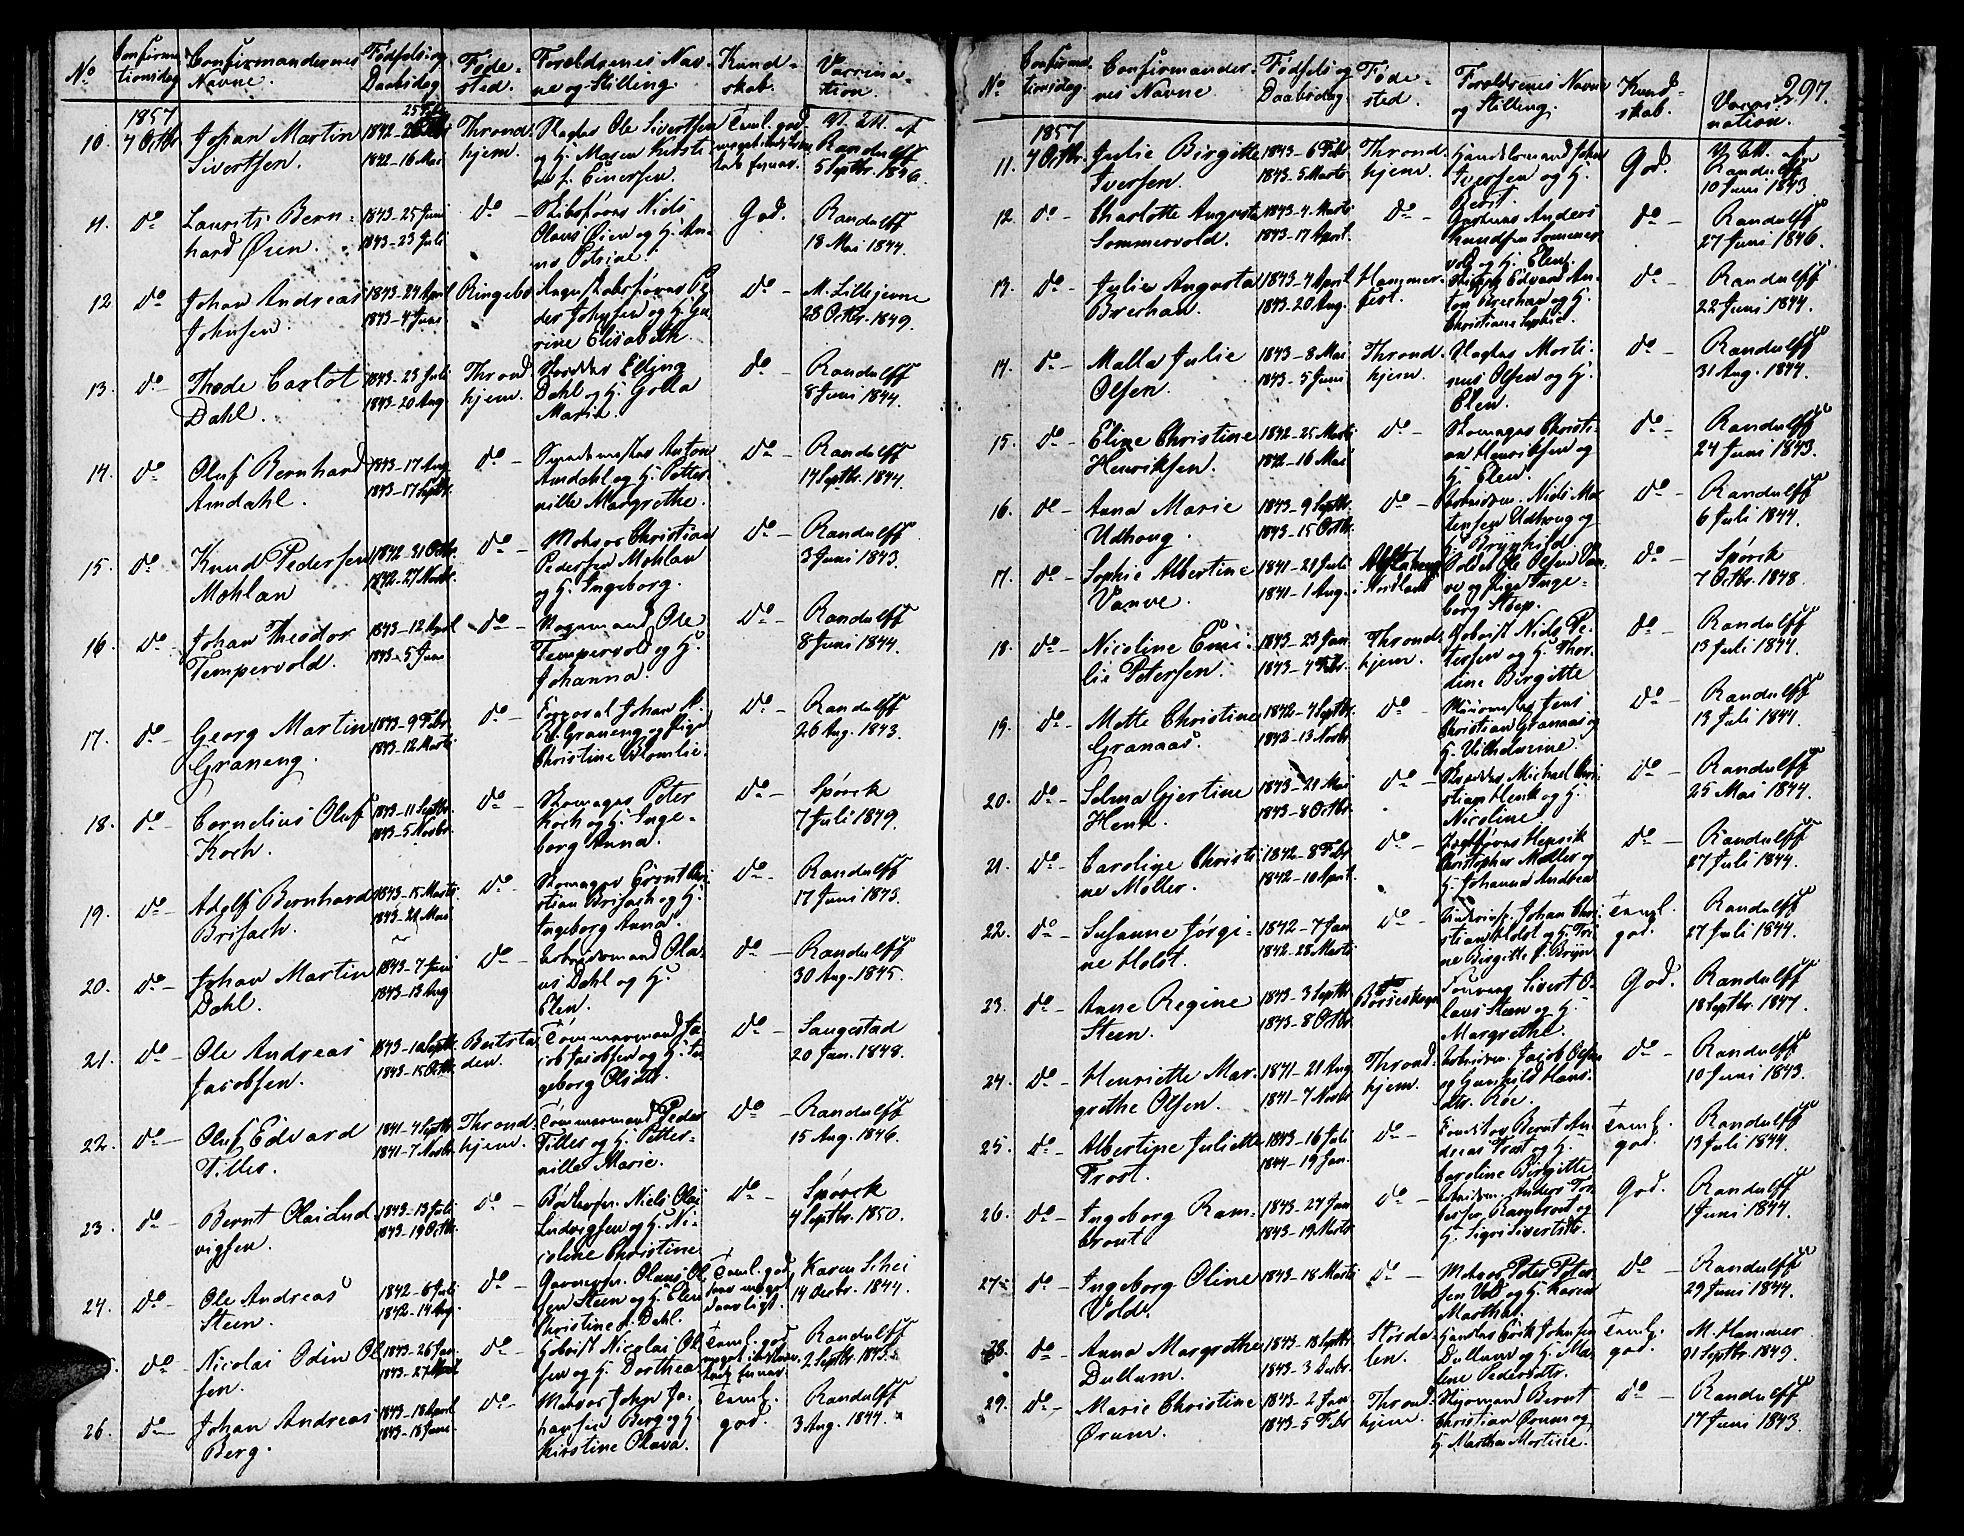 No
Confirma-
tionsdag
Confirmandernes
Navne.
Fødsels og
Daabsdag
Føde-
sted.
Forældrenes Nav-
ne og Stilling
Kund-
skab.
Vaccina-
tion.
1857
10. 7 Octbr
Johan Martin
Sivertsen.
1842-16 Mai
Thrond-
hjem.
Ole Sivertsen
og H. Maren Kirsti-
ne f. Einersen
Teml. god.
af
Randulff
5 Septbr. 1846.
11. do
Laurits Bern-
hard Øien.
1843-25 Juni
1843-23 Juli
do -
Skibsfører Niels
Olaus Øien og H. An-
ne Petrine.
God.
Randulff
18 Mai 1844.
12 do
Johan Andreas
Johnsen.
1843-24 April
1843-4 Juni
Ringebo
Johnsen og H. Ga-
rine Elisabeth.
do -
M. Lillejevne
28 Octbr. 1849.
13. do -
Thode Carlot
Dahl.
1843-23 Juli
1843-20 Aug
Thrond
hjem.
Skrædder Elling
Dahl og H. Golla
Maria.
do -
Randulff
8 Juni 1844.
14. do
Oluf Bernhard
Amdahl.
1843-17 Aug
1843-17 Septbr.
do -
Anton
Amdahl og H. Petter-
nille Margrethe.
do -
Randulff
14 Septbr. 1844.
15. do
Knud Pedersen
Mohlan
1842-31 Octbr.
1842-27 Novbr.
do -
Matros Christian
Pedersen Mohlan
og H. Ingeborg.
do -
Randulff
3 Juni 1843.
16. do
Johan Theodor
Tempervold.
1843-12 April
1843-5 Juni
do -
Vognmand Ole
Tempervold og H.
Johanna.
do -
Randulff
8 Juni 1844.
17. do -
Georg Martin
Graneng.
1843-9 Febr.
1843-12 Marts
do -
Corporal Johan
Graneng og Pige
Christine Blomlie.
do -
Randulff
26 Aug. 1843.
18. do -
Cornelius Oluf
Koch.
1843-11 Septbr.
1843-5 Novbr.
do -
Skomager Peter
Koch og H. Inge-
borg Anna.
do -
Spørck
7 Juli 1849.
19. do -
Adolf Bernhard
Brisach.
1843-15 Marts
1843-21 Mai
do -
Skomager Ernst Chri-
stian Brisach og H.
Ingeborg Anna.
do -
Randulff
17 Juni 1843.
20. do -
Johan Martin
Dahl.
1843-7 Juni
1843-13 Aug
do -
Arbeidsmand Ola-
us Dahl og H.
Elen.
do -
Randulff
30 Aug. 1845.
21. do -
Ole Andreas
Jacobsen.
1843-10 Septbr.
1843-15 Octbr.
Bertsta
den.
Tømmermand Ja-
cob Jacobsen og H. In-
geborg Olsdtr.
do -
Sangestad
20 Jan. 1848.
22. do -
Oluf Edvard
Tiller.
1841-4 Septbr.
1841-7 Novbr.
Thrond-
hjem.
Tømmermand Peder
Tiller og H. Petter-
nille Marie.
do -
Randulff
15 Aug. 1846.
23. do -
Bernt Olai Lud-
vigsen.
1843-13 Juli
1843-19 Octbr.
do -
Niels Olai
Ludvigsen og H. Ni-
coline Christine
do -
Spørck
4 Septbr. 1850.
24. do -
Ole Andreas
Steen.
1842-6 Juli
1842-14 Aug.
do -
Olaus Ol-
sen Steen og H. Elen
Christine f. Dahl.
Teml. god
men meget
daarligt.
Karen Schei
14 Decbr. 1844.
do -
Nicolai Odin Ol-
sen.
1843-26 Jan.
1843-27 April
do -
Nicolai Ol-
sen og H. Dorthea
Teml. god
Randulff
2 Septbr. 1843.
26. do -
Johan Andreas
Berg.
1843-18 April
1843-18 Juni
do -
Matros John Jo-
hansen Berg og H.
Kirstine Olava.
Teml.
god.
Randulff
3 Aug. 1844.
297.
No
Confirma-
tionsdag.
Confirmander-
nes Navne.
Fødsels og
Daabsdag.
Føde-
sted.
Forældrenes Navne
og Stilling.
Kund-
skab.
Vacci-
nation.
1857
11. 7 Octbr.
Julie Birgitte
Iversen.
1843-6 Febr
1843-5 Marts
Thrond-
hjem.
Handelsmand John
Iversen og H.
Berit.
God.
Randulff
10 Juni 1843.
12 do -
Charlotte Augusta
Sommervold.
1843-4 Marts
1843-17 April.
do -
Anders
Knudsen Sommer-
vold og H. Elen.
do -
Randulff
27 Juni 1846.
13. do -
Julie Augusta
Brechan.
1843-4 April
1843-20 Aug.
Hammer-
fest.
Edvard An-
ton Brechan og H.
Christiane Sophie.
do -
Randulff
22 Juni 1844.
14. do -
Malla Julie
Olsen.
1843-8 Mai
1843-5 Juni
Thrond-
hjem.
Slagter Morti-
nus Olsen og H.
Elen.
do -
Randulff
31 Aug. 1844.
15. do -
Eline Christine
Henriksen.
1842-25 Marts
1842-16 Mai
do -
Skomager Christi-
an Henriksen og
H. Elen.
do -
Randulff
24 Juni 1843.
16. do -
Anna Marie
Udhoug.
1843-9 Septbr.
1843-15 Octbr.
do -
Arbeidsm. Niels Mor-
tensen Udhoug og
H. Brynhild
do -
Randulff
6 Juli 1844.
17. do -
Sophie Albertine
Vanve.
1841-21 Juli
1841-1 Aug.
i Nordland
Ole Olsen Van-
ve og Pige Inge-
borg Stoep.
do -
Spørck
7 Octbr. 1848.
18. do -
Nicoline Emi-
lie Petersen.
1843-23 Jan.
1843-4 Febr.
Thrond-
hjem.
Niels Pe-
tersen og H. Thor-
dine Birgitte
do -
Randulff
13 Juli 1844.
19. do -
Mette Christine
Granaas.
1842-4 Septbr.
1842-13 Novbr.
do -
Jens
Christian Granaas og
H. Vilhelmine.
do -
Randulff
13 Juli 1844.
20. do -
Selma Gjertine
Henk.
1843-21 Mai
1843-8 Octbr.
do -
Skrædder Michael Chri-
stian Henk og H.
Nicoline
do -
Randulff
25 Mai 1844.
21. do -
Caroline Christi-
ne Møller.
1842-8 Febr
1842-10 April.
do -
Henrik
Christopher Møller og
H. Johanna Andrea
do -
Randulff
27 Juli 1844.
22. do -
Susanne Jørgi-
ne Holst.
1842-7 Jan
1842-28 Marts
do -
Johan Chri-
stian Holst og H. Tri-
ne Birgitte f. Bryn
Teml.
god.
Randulff
27 Juli 1844.
23. do -
Anne Regine
Steen.
1843-3 Septbr
1843-8 Octbr.
Børseskogn
Sivert O-
laus Steen og H.
Margrethe.
God.
Randulff
18 Septbr. 1847.
24. do -
Henriette Mar-
grethe Olsen.
1841-21 Aug
1841-7 Novbr.
Thrond-
hjem.
Arbeidsm. Jacob Olsen
og Gunhild Hans-
dtr. Roe.
do -
Randulff
10 Juni 1843.
25. do -
Albertine Juliette
Frost.
1843-16 Juli
1844-19 Jan.
do -
Bernt An-
dreas Frost og H.
Caroline Birgitte
Teml.
god.
Randulff
13 Juli 1844.
26. do -
Ingeborg Ram-
brout.
1843-27 Jan
1843-19 Marts
do -
Arbeidsm. Anders Tor-
gersen Rambrout og
H. Sigri Sivertsdtr.
God.
Randulff
1 Juni 1844.
27. do -
Ingeborg Oline
Vold.
1843-18 Marts
do -
Matros Peter Peter-
sen Vold og H. Karen
Martha.
do -
Randulff
29 Juni 1844.
28. do -
Anna Margrethe
Dullum.
1843-18 Septbr.
1843-3 Decbr.
Størda-
len.
Handler Erik Johnsen
Dullum og H. Ma-
lene Pedersdtr.
Teml.
god.
M. Hammer
21 Septbr. 1849.
29. do -
Marie Christine
Ørum.
1843-2 Jan.
1843-5 Febr
Thrond-
hjem.
Bernt
Christian Ørum og
H. Martha Mortine.
do -
Randulff
17 Juni 1843.